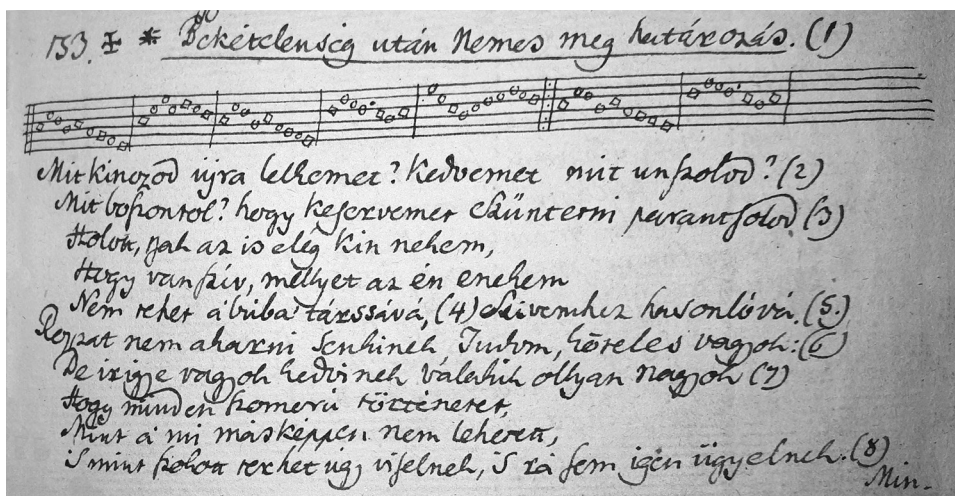 153. ‡ * Békételenség után Nemes meg határozás. (1)
Mit kinozod ujra lelkemet? Kedvemet mit unszolod? (2)
Mit boszontol? hogy keservemet Szünterni parantsolod (3)
Holott, jah az is elég kin nekem,
Hogy van szív, mellyet az én énekem
Nem tehet a búba társsává, (4) Szivemhez hasonlóvá. (5.)
Rosszat nem akarni senkinek Tudom, köteles vagyok: (6)
De irigye vagyok kedvinek Valakik ollyan nagyok (7)
Hogy minden szomorú történetet,
Mint a mi másképpen nem lehetett,
is mint szokott terhet úgy viselnek, 's rá sem igen ügyelnek. (8)
Min-